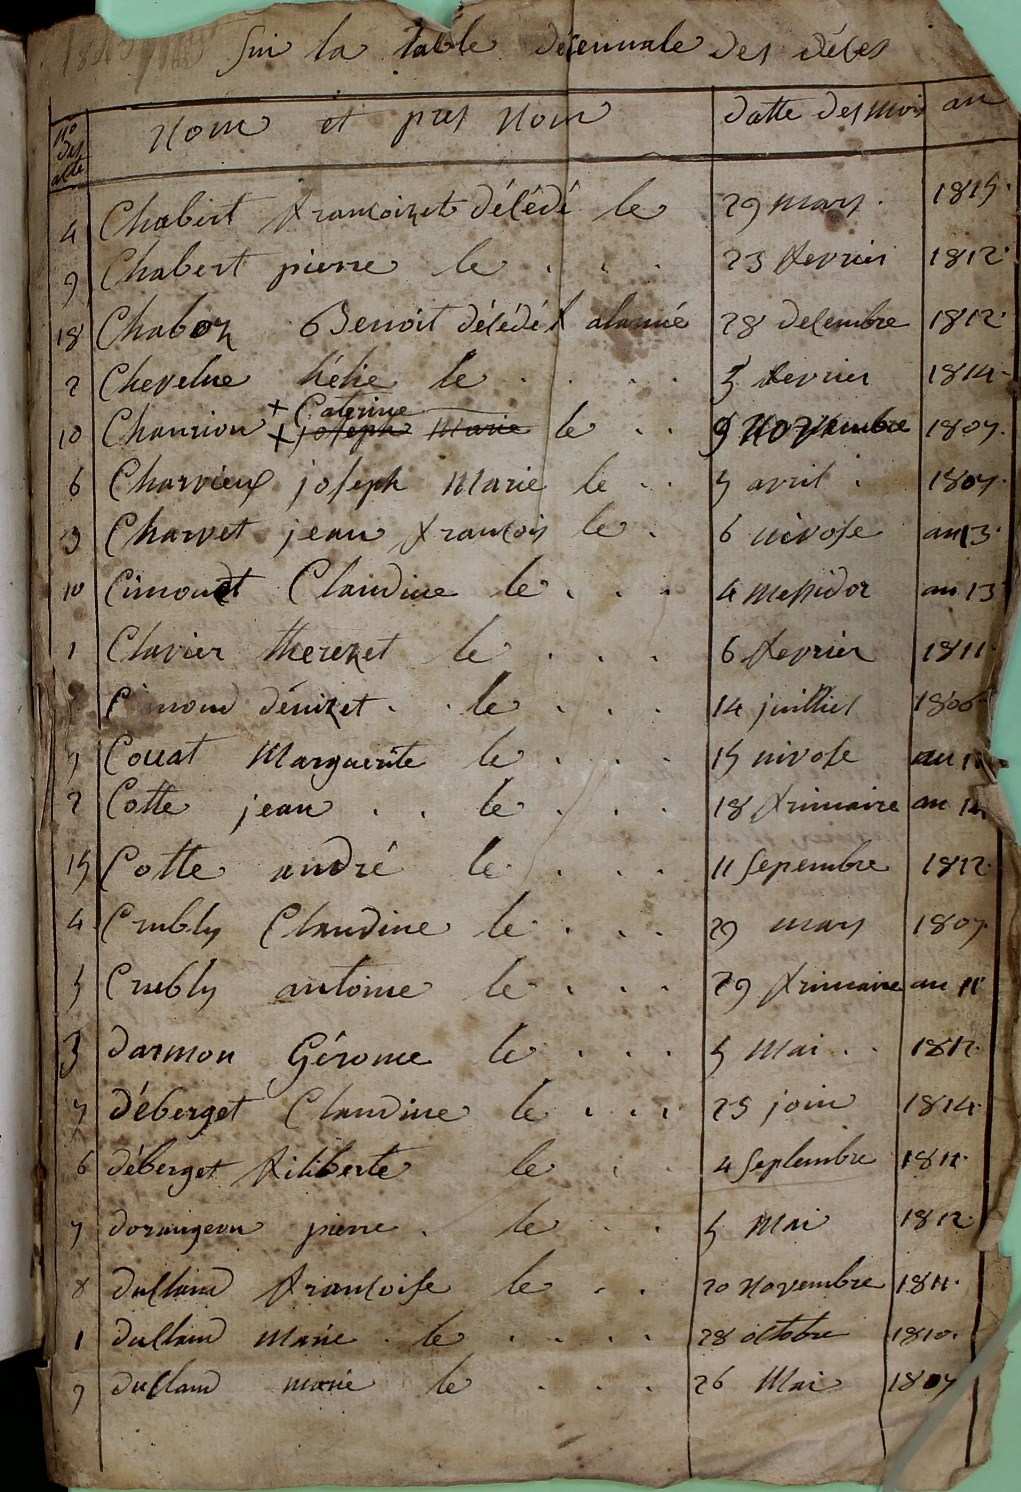 Sur la table décennale des décès
No des acte nom et pres nom datte des mois an
4 Chabert francoizet décédé le 29 mars. 1815.
9 Chabert pierre le . . . 23 fevrier 1812.
18 Chaboz Benoit décédé 28 decembre 1812.
2 Chevelue hélie le . . . . 5 fevrier 1814.
+ Caterine
10 Chanrion + joseph Marie le . . 9 Novembre 1807.
6 Charvieux joseph Marie le . . 5 avril . 1807.
3 Charvet jean francois le . 6 nivose an 13.
10 Cimondt Claudine le . . . 4 messidor an 13
1 Clavier therezet le . . . 6 fevrier 1811.
Cimond dénizet . . le . . . 14 juilliet 1806.
9 Couat Marguerite le . . . 15 nivose an
2 Cotte jean . . le . . . 18 frimaire an 14
15 Cotte andré le . . . 11 Sepembre 1812.
4 Crubly Claudine le . . . 29 mars 1807.
5 Crubly antoine le . . . 29 frimaire an 11
3 darmon Gérome le . . . 5 Mai . . 1812.
7 déberget Claudine le . . . 25 join 1814.
6 déberget filiberte le . . 4 Septembre 1811.
7 dorangeon pierre . le . . 5 Mai 1812
8 ducland francoise le . . 20 Novembre 1811.
1 ducland Marie . le . . . . 28 octobre 1810.
9 ducland marie le . . . 26 Mai 1807